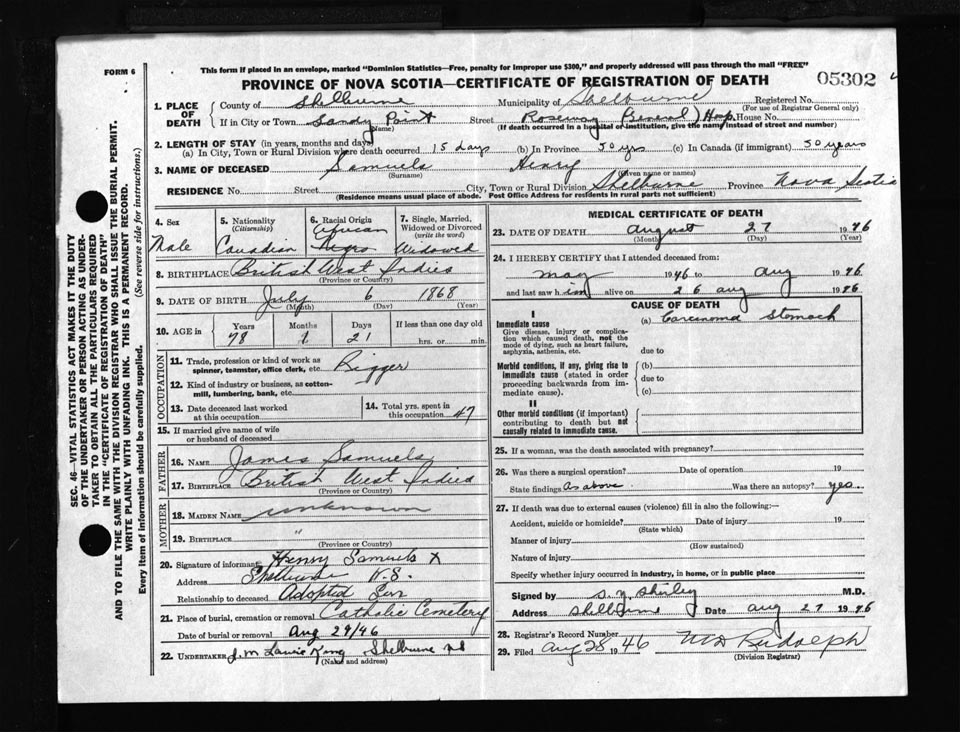 This form if placed in an envelope, marked "Dominion Statistics—Free, penalty for improper use $300," and properly addressed will pass through the mail "FREE"
FORM 6
PROVINCE OF NOVA SCOTIA—CERTIFICATE OF REGISTRATION OF DEATH
05302
1. PLACE OF DEATH
County of Shelburne Municipality of Shelburne Registered No.
(For use of Registrar General only)
If in City or Town Sandy Point Street Roseway General Hosp. House No.
(Name) (If death occurred in a hospital or institution, give the name instead of street and number)
2. LENGTH OF STAY (in years, months and days)
(a) In City, Town or Rural Division where death occurred 15 days (b) In Province 50 yrs (c) In Canada (if immigrant) 50 years
3. NAME OF DECEASED Samuels Henry
(Surname) (Given name or names)
RESIDENCE No. Street City, Town or Rural Division Shelburne Province Nova Scotia
(Residence means usual place of abode. Post Office Address for residents in rural parts not sufficient)
4. Sex Male
5. Nationality (Citizenship) Canadian
6. Racial Origin African Negro
7. Single, Married, Widowed or Divorced (write the word) Widowed
8. BIRTHPLACE British West Indies
(Province or Country)
9. DATE OF BIRTH July 6 1868
(Month) (Day) (Year)
10. AGE in Years Months Days If less than one day old
78 1 21 hrs. or min.
OCCUPATION
11. Trade, profession or kind of work as spinner, teamster, office clerk, etc. Rigger
12. Kind of industry or business, as cotton-mill, lumbering, bank, etc.
13. Date deceased last worked at this occupation
14. Total yrs. spent in this occupation 47
15. If married give name of wife or husband of deceased
FATHER
16. NAME James Samuels
17. BIRTHPLACE British West Indies
(Province or Country)
MOTHER
18. MAIDEN NAME unknown
19. BIRTHPLACE "
(Province or Country)
20. Signature of informant Henry Samuels X
Address Shelburne N.S.
Relationship to deceased Adopted Son
21. Place of burial, cremation or removal Catholic Cemetery
Date of burial or removal Aug 29/46
22. UNDERTAKER J.M Laurie King Shelburne NS
(Name and address)
MEDICAL CERTIFICATE OF DEATH
23. DATE OF DEATH August 27 1946
(Month) (Day) (Year)
24. I HEREBY CERTIFY that I attended deceased from:
May 1946 to Aug 1946
and last saw him alive on 26 Aug 1946
CAUSE OF DEATH
I
Immediate cause (a) Carcinoma Stomach
Give disease, injury or complication which caused death, not the mode of dying, such as heart failure, asphyxia, asthenia, etc.
due to
Morbid conditions, if any, giving rise to immediate cause (stated in order proceeding backwards from immediate cause).
(b)
due to
(c)
II
Other morbid conditions (if important) contributing to death but not causally related to immediate cause.
25. If a woman, was the death associated with pregnancy?
26. Was there a surgical operation? Date of operation 19
State findings As above Was there an autopsy? yes
27. If death was due to external causes (violence) fill in also the following:—
Accident, suicide or homicide? Date of injury 19
(State which)
Manner of injury
(How sustained)
Nature of injury
Specify whether injury occurred in industry, in home, or in public place
Signed by M.D.
Address Shelburne Date Aug 27 1946
28. Registrar's Record Number
29. Filed Aug 28 1946 M D Rudolph
(Division Registrar)
SEC. 46—VITAL STATISTICS ACT MAKES IT THE DUTY
OF THE UNDERTAKER OR PERSON ACTING AS UNDER-
TAKER TO OBTAIN ALL THE PARTICULARS REQUIRED
IN THE "CERTIFICATE OF REGISTRATION OF DEATH"
AND TO FILE THE SAME WITH THE DIVISION REGISTRAR WHO SHALL ISSUE THE BURIAL PERMIT.
WRITE PLAINLY WITH UNFADING INK. THIS IS A PERMANENT RECORD.
Every item of information should be carefully supplied. (See reverse side for instructions.)